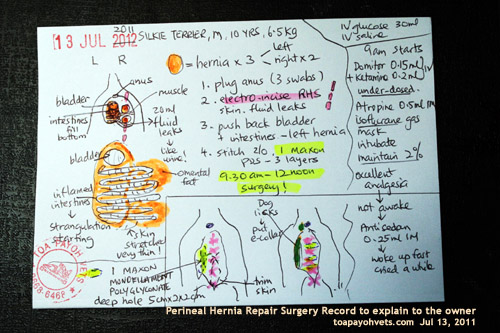 2011
13 JUL 2012
SILKIE TERRIER, M, 10 YRS, 6.5kg
L R
anus
muscle
bladder
intestines
fill
bottom
20ml
fluid
leaks
like
urine!
bladder
omental
fat
inflamed
intestines
Strangulation
starting
skin
stretched
very thin!
= hernia x 3
left
right x 2
1. plug anus (3 swabs)
2. electro-incise RHS
skin. fluid leaks
3. push back bladder
+ intestines - left hernia
4. stitch 2/0. 1 MAXON
PDS - 3 layers
9.30 am - 12 noon
surgery!
IV glucose 30ml
IV saline
9am starts
Domitor 0.15ml
+ Ketamine 0.2ml
IV
under-dosed.
Atropine 0.5ml IM
isoflurane gas
mask
intubate
maintain 2%
excellent
analgesia
not awake
Antisedan
0.25ml IM
woke up fast
cried a while
Dog
licks
put
e-collar
trim
skin
TOA PAYOH VETS
1 MAXON
MONOFILAMENT
POLYGLYCONATE
deep hole 5cmx2x2cm
Perineal Hernia Repair Surgery Record to explain to the owner
toapayohvets.com Jul 13, 2011